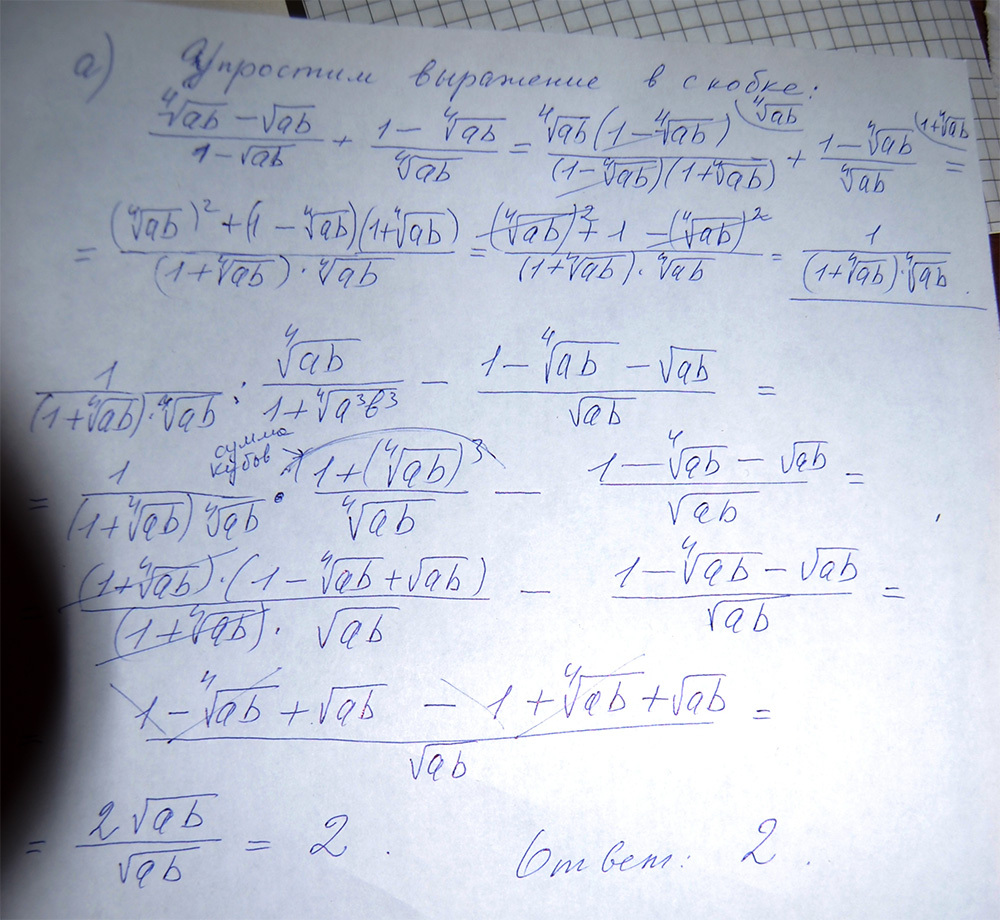 а) Упростим выражение в скобке:
(⁴√ab − √ab)/(1 − √ab) + (1 − ⁴√ab)/⁴√ab = ⁴√ab(1 − ⁴√ab)^(⁴√ab)/((1 − ⁴√ab)(1 + ⁴√ab)) + (1 − ⁴√ab)^(1 + ⁴√ab)/⁴√ab =
= ((⁴√ab)² + (1 − ⁴√ab)(1 + ⁴√ab))/((1 + ⁴√ab) · ⁴√ab) = ((⁴√ab)² + 1 − (⁴√ab)²)/((1 + ⁴√ab) · ⁴√ab) = 1/((1 + ⁴√ab) · ⁴√ab).
1/((1 + ⁴√ab) · ⁴√ab) : ⁴√ab/(1 + ⁴√a³b³) − (1 − ⁴√ab − √ab)/√ab =
сумма
кубов
= 1/((1 + ⁴√ab) ⁴√ab) · (1 + (⁴√ab)³)/⁴√ab − (1 − ⁴√ab − √ab)/√ab =
((1 + ⁴√ab) · (1 − ⁴√ab + √ab))/((1 + ⁴√ab) · √ab) − (1 − ⁴√ab − √ab)/√ab =
(1 − ⁴√ab + √ab − 1 + ⁴√ab + √ab)/√ab =
= 2√ab/√ab = 2. Ответ: 2.